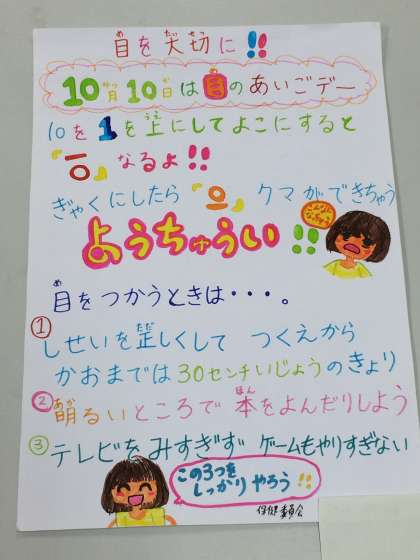 目を大切に!!
10月10日は目のあいごデー
10を1を上にしてよこにすると
「一〇」なるよ!!
ぎゃくにしたら「〇一」クマができちゃう
ようちゅうい!!
目をつかうときは・・・。
①しせいを正しくして つくえから
かおまでは30センチいじょうのきょり
②明るいところで本をよんだりしよう
③テレビをみすぎず ゲームもやりすぎない
この3つを
しっかりやろう!!
保健委員会